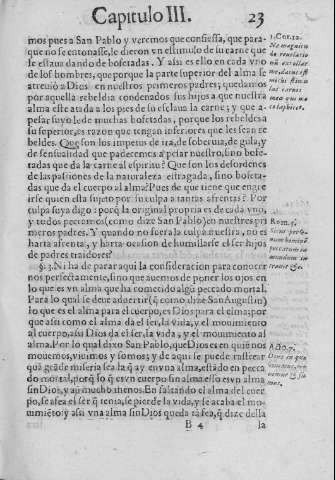 Capitulo III. 23
mos pues a San Pablo y veremos que confiessa, que para-
que no se entonasse, le dieron vn estimulo de su carne que
le estaua dando de bofetadas. Y assi es ello en cada vno
de los hombres, que porque la parte superior del alma se
atreuiò a Dios en nuestros primeros padres; quedamos
por aquella rebeldia condenados sus hijos a que nuestra
alma este atada a los pies de su esclaua la carne; y que a
pesar suyo le de muchas bofetadas, porque los rebeldes a
su superior, es razon que tengan inferiores que les sean re
beldes. Que son los impetus de ira, de soberuia, de gula, y
de sensualidad que padecemos a pesar nuestro, sino bofe-
tadas que da la carne al espiritu? Que son los desordenes
de las passiones de la naturaleza estragada, sino bofeta-
das que da el cuerpo al alma? Pues de que tiene que engre
irse quien esta sujeto por su culpa a tantas afrentas? Por
culpa suya digo a porq̃ la original propria es de cada vno,
y todos peccamos (como dize San Pablo) en nuestros pri
meros padres. Y quando no fuera la culpa nuestra, no es
harta afrenta, y harta ocasion de humillarse el ser hijos
de padres traidores?
§. 3. Ni ha de parar aqui la consideracion para conocer
nos perfectamente, sino que auemos de poner los ojos en
lo que es vn alma que ha cometido algũ peccado mortal.
Para lo qual se deue aduertir (q̃ como dize San Augustin)
lo que es el alma para el cuerpo, es Dios para el alma: por
que assi como el alma da el ser, la vida, y el mouimiento
al cuerpo, assi Dios da el ser, la vida, y el mouimiento al
alma. Por lo qual dixo San Pablo, que Dios es en quiẽ nos
mouemos, viuimos y somos; y de aqui se puede rastrear
quã grãde miseria sea la q̃ ay en vna alma, està do en pecca
do mortal, porq̃ lo q̃ es vn cuerpo sin alma, esso es vn alma
sin Dios, y aũ mucho menos. En faltando el alma del cuer
po, se afea el ser q̃ tenia, se pierde la vida, y se acaba el mo-
uimiẽto: y assi vna alma sin Dios queda tã fea, q̃ dize della
B 4 la
1. Cor. 12.
Rom. 5.